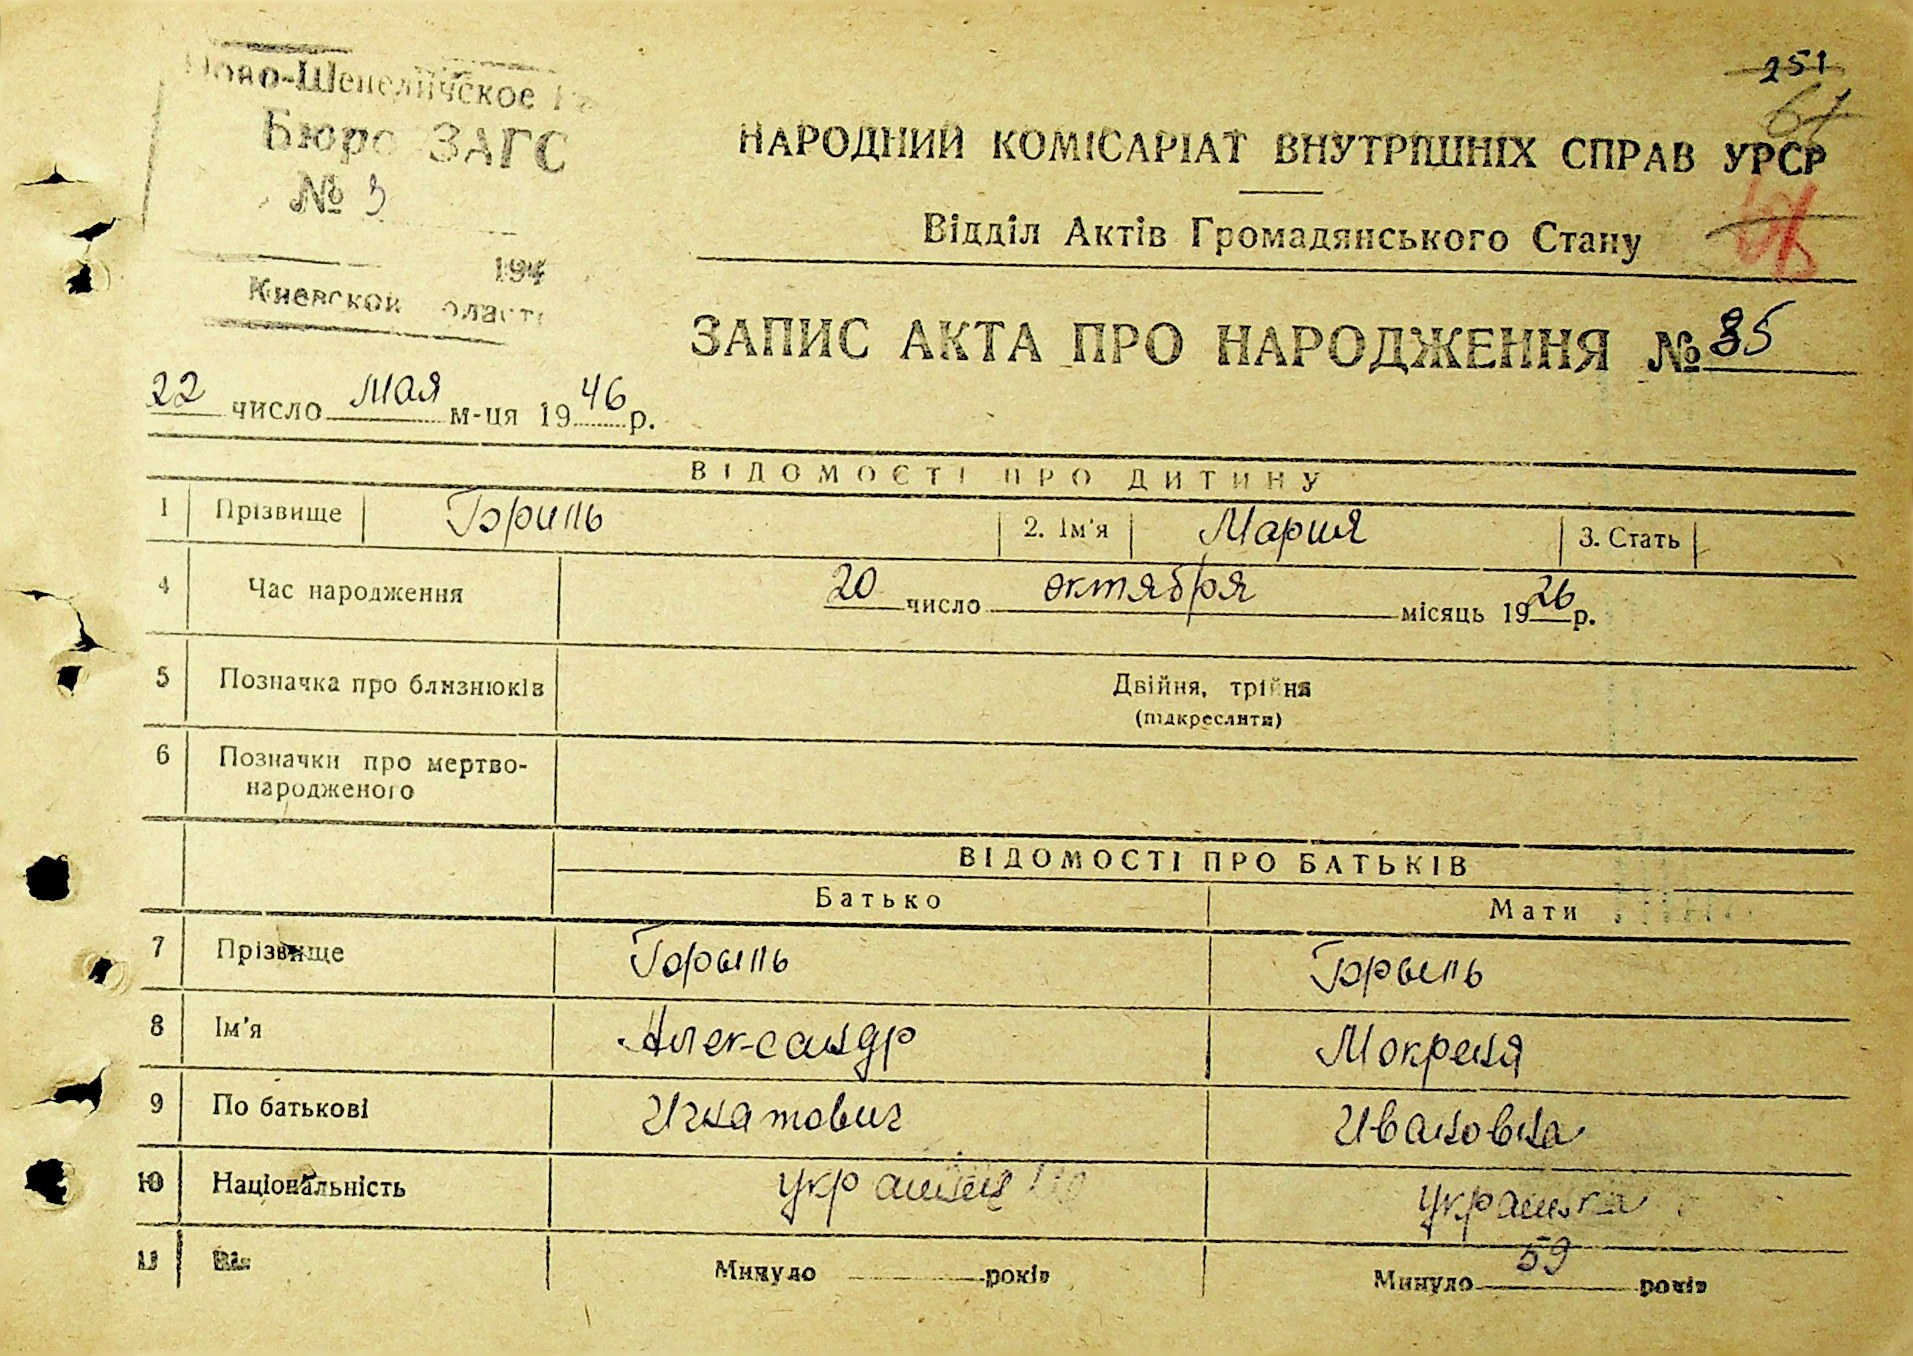 Ново-Шепеличское
Бюро ЗАГС
№ 3
194
Киевской
251
НАРОДНИЙ КОМІСАРІАТ ВНУТРІШНІХ СПРАВ УРСР
Відділ Актів Громадянського Стану
ЗАПИС АКТА ПРО НАРОДЖЕННЯ № 85
22 число мая м-ця 1946 р.
ВІДОМОСТІ ПРО ДИТИНУ
1 Прізвище Горипь 2. Ім'я Мария 3. Стать
4 Час народження 20 число октября місяць 1926 р.
5 Позначка про близнюків Двійня, трійня
(підкреслити)
6 Позначки про мертво-
народженого
ВІДОМОСТІ ПРО БАТЬКІВ
Батько Мати
7 Прізвище Горыпь Горыпь
8 Ім'я Александр Мокрена
9 По батькові Игнатович Ивановна
10 Національність украинец украинка
11 Вік Минуло років Минуло 59 років